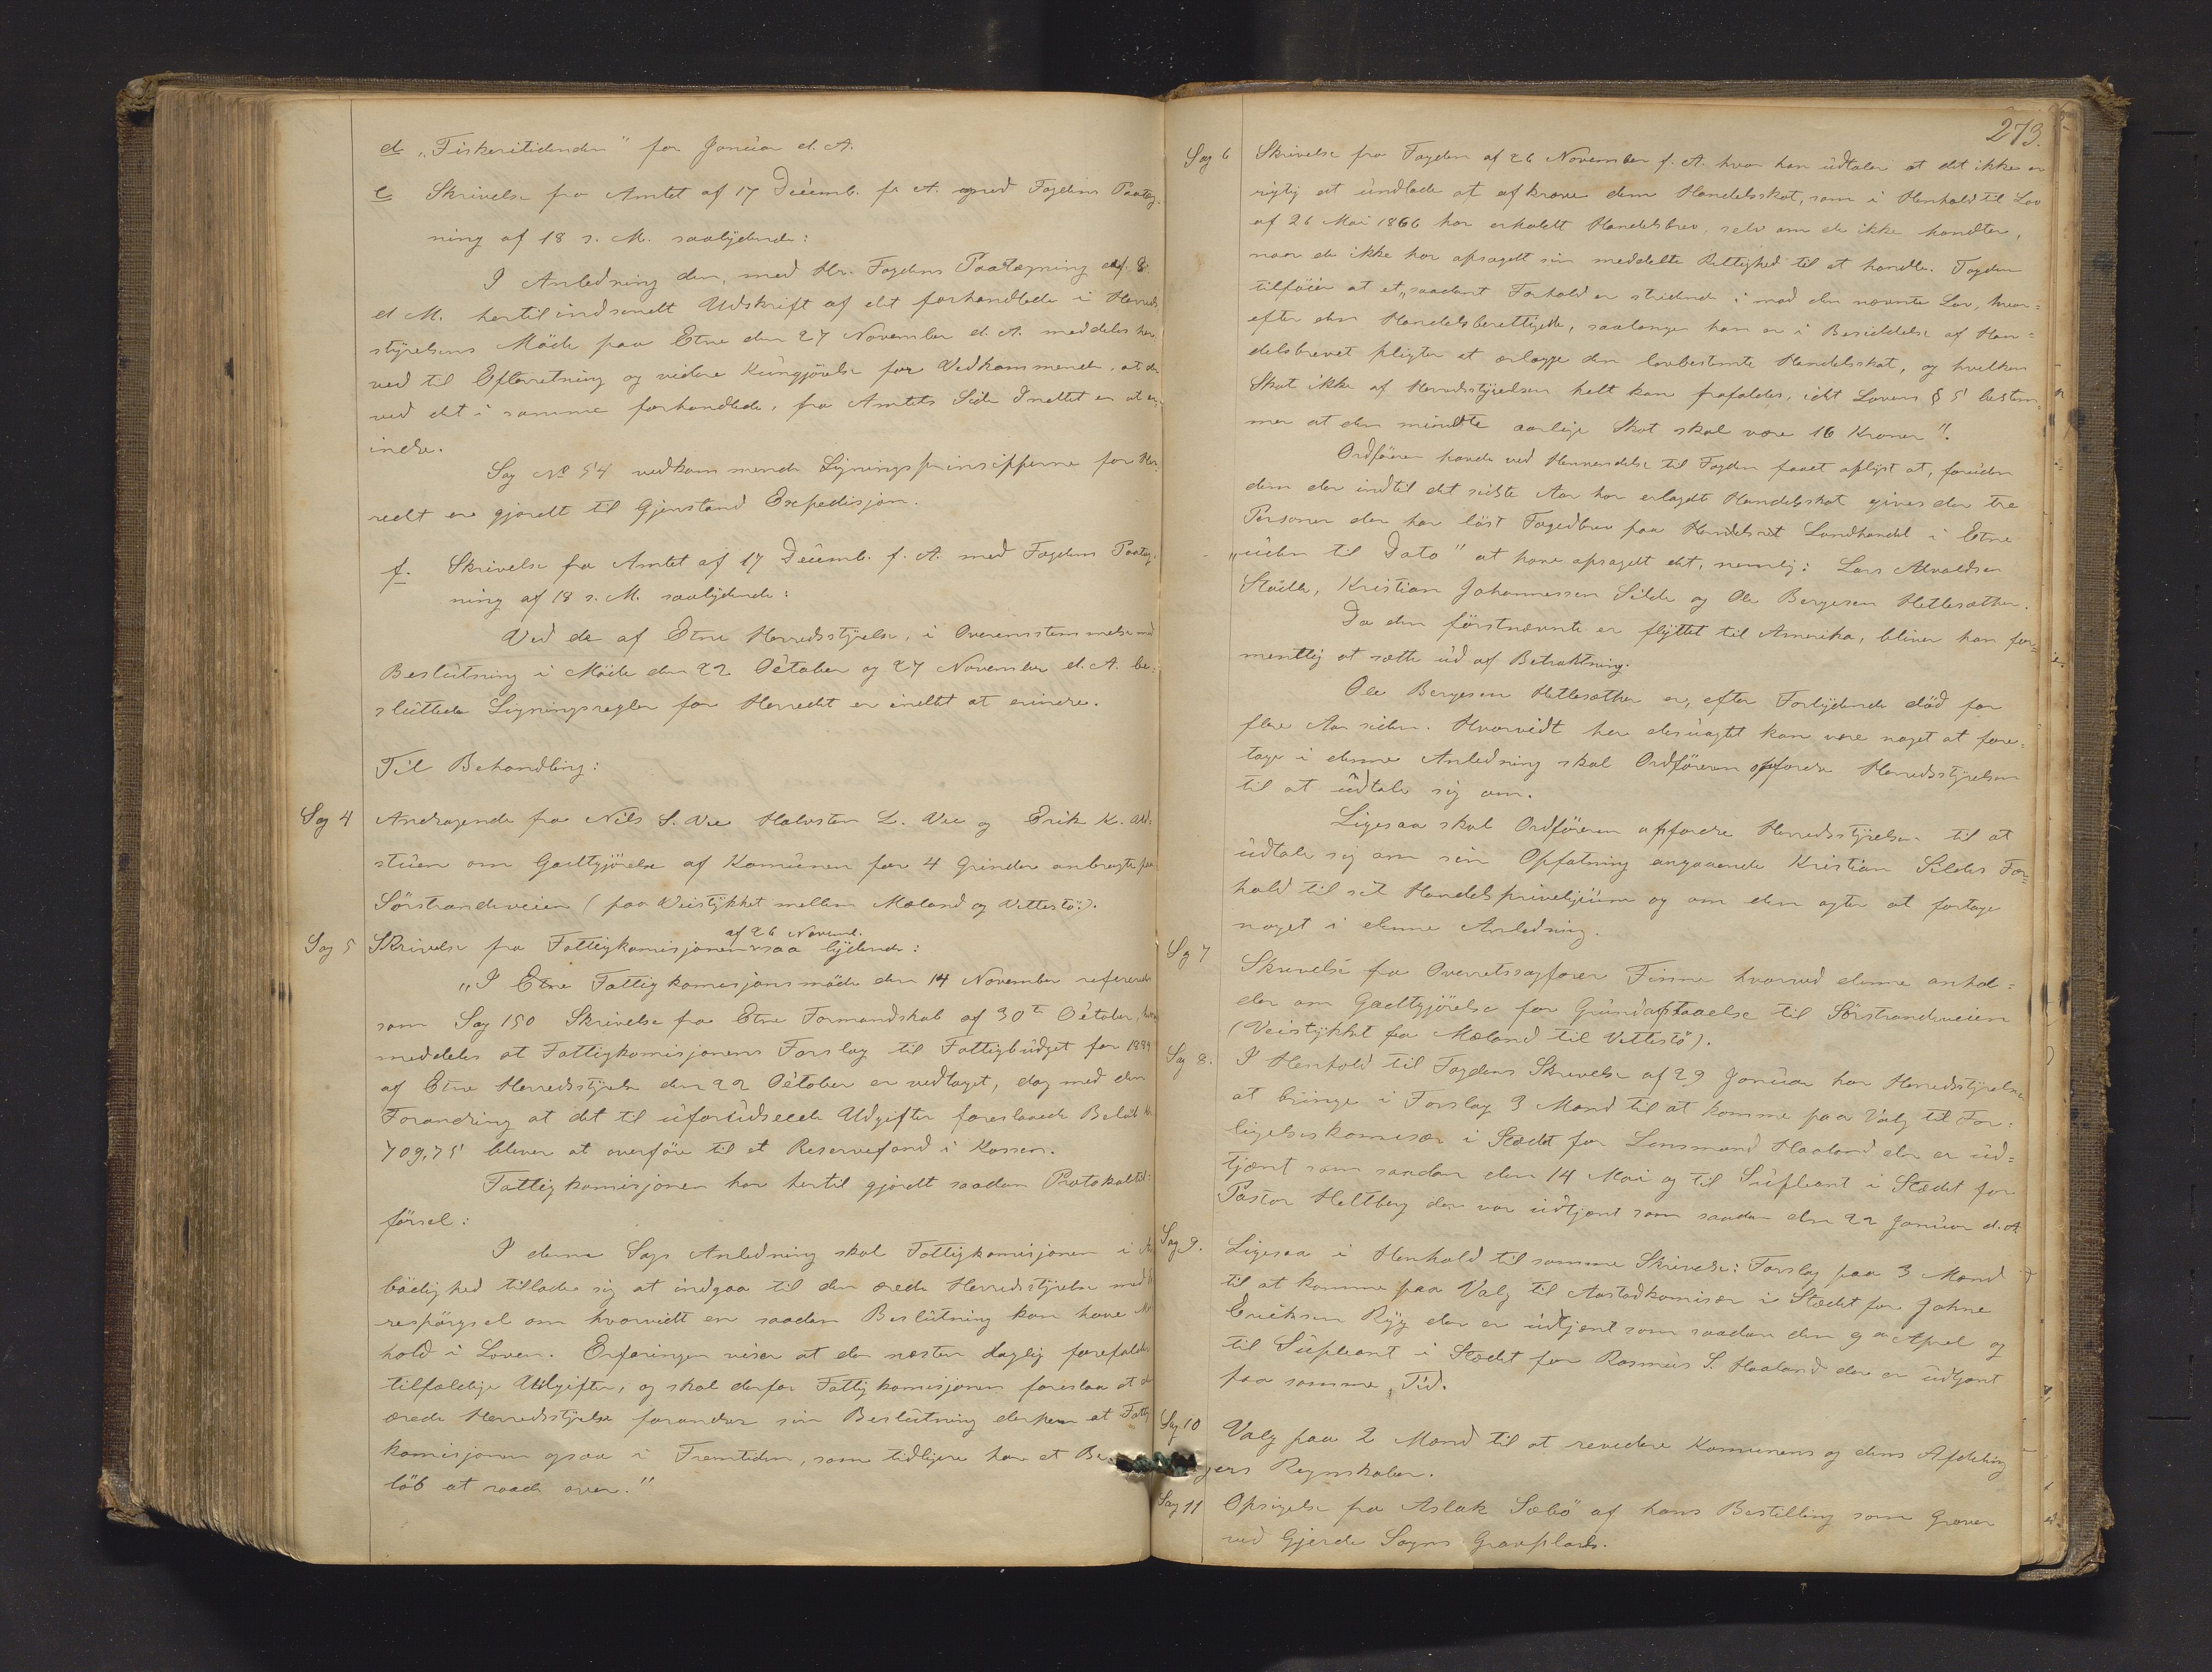 d „Fiskeritidenden" for Januar d. A.
e Skrivelse fra Amtet af 17 Decemb. f. A. med Fogdens Paateg-
ning af 18 s. M. saalydende:
I Anledning den, med Hr. Fogdens Paategning af 8
d M. hertil indsendt Udskrift af det forhandlede i Herreds
styrelsens Möde paa Etne den 27 November d. A. meddeles her
ved til Efterretning og videre Kungjörelse for Vedkommende, at der
ved det i samme forhandlede, fra Amtets Side Indtet er at er-
indre.
Sag No 54 vedkommende Ligningsprinsipperne for Her-
redt ere gjordt til Gjenstand Expedisjon.
f. Skrivelse fra Amtet af 17 Decemb. f. A. med Fogdens Paateg-
ning af 18 s. M. saalydende:
Ved de af Etne Herredsstyrelse, i Overensstemmelse med
Beslutning i Möde den 22 October og 27 November d. A. be-
sluttede Ligningsregler for Herredt er indtet at erindre.
Til Behandling:
Sag 4 Andragende fra Nils S. Vee Halvsten L. Vee og Erik K.
stuen om Godtgjörelse af Komunen for 4 Grinder anbragte paa
Sörstrandsveien (paa Veistykket mellem Mæland og Vettestö).
Sag 5 Skrivelse fra Fattigkomisjonen af 26 Novemb. saa lydende:
„I Etne Fattigkomisjonsmöde den 14 November refereredes
som Sag 150 Skrivelse fra Etne Formandskab af 30te October,
meddeles at Fattigkomisjonens Forslag til Fattigbudget for 1889
af Etne Herredsstyrelse den 22 October er vedtaget, dog med den
Forandring at det til uforudseede Udgifter foreslaaede Belöb Kr.
709,75 bliver at overföre til et Reservefond i Kassen.
Fattigkomisjonen har hertil gjordt saadan Protokoltil-
försel:
I denne Sags Anledning skal Fattigkomisjonen i Ær
bödighed tillade sig at indgaa til den ærede Herredsstyrelse med
respörgsel om hvorvidt en saadan Beslutning kan have Med
hold i Loven. Erfaringen viser at der næsten daglig forefalder
tilfældige Udgifter, og skal derfor Fattigkomisjonen foreslaa at den
ærede Herredsstyrelse forandrer sin Beslutning derhen at Fattig
komisjonen ogsaa i Fremtiden, som tidligere har et Be-
löb at raade over."
273.
Sag 6 Skrivelse fra Fogden af 26 November f. A. hvor han udtaler at det ikke er
rigtig at undlade at afkræve dem Handelsskat, som i Henhold til Lov
af 26 Mai 1866 har erholdt Handelsbrev, selv om de ikke handler,
naar de ikke har opsagdt sin meddelte Rettighed til at handle. Fogden
tilföier at et „saadant Forhold er stridende i mod den nævnte Lov, hvor-
efter den Handelsberettigede, saalænge han er i Besiddelse af Han-
delsbrevet pligter at erlægge den lovbestemte Handelsskat, og hvilken
Skat ikke af Herredsstyrelsen helt kan frafaldes, idet Lovens § 5 bestem-
mer at den mindste aarlige Skat skal være 16 Kroner".
Ordföreren havde ved Henvendelse til Fogden faaet oplyst at, foruden
dem der indtil det sidste Aar har erlagdt Handelsskat gives der tre
Personer der har löst Fogedbrev paa Landhandel i Etne
„uden til Dato" at have opsagdt det, nemlig: Lars Alvaldsen
Stödle, Kristian Johannessen Silde og Ole Bergesen Hetlesæther.
Da den förstnævnte er flyttet til Amerika, bliver han for-
mentlig at sætte ud af Betraktning.
Ole Bergesen Hetlesæther er, efter Forlydende död for
flere Aar siden. Hvorvidt her desuagtet kan være noget at fore-
tage i denne Anledning skal Ordföreren opfordre Herredsstyrelsen
til at udtale sig om.
Ligesaa skal Ordföreren opfordre Herredsstyrelsen til at
udtale sig om sin Opfatning angaaende Kristian Sildes For-
hold til sit Handelsprivilejium og om den agter at fortage
noget i denne Anledning.
Sag 7 Skrivelse fra Overretssagförer Finne hvorved denne anhol-
der om Godtgjörelse for Grundafstaaelse til Sörstrandsveien
(Veistykket fra Mæland til Vettestö).
Sag 8. I Henhold til Fogdens Skrivelse af 29 Januar har Herredsstyrelsen
at bringe i Forslag 3 Mænd til at komme paa Valg til For-
ligelseskomisær i Stædet for Lensmand Haaland der er ud-
tjent som saadan den 14 Mai og til Supleant i Stædet for
Pastor Heltberg der var udtjent som saadan den 22 Januar d. A.
Sag 9. Ligesaa i Henhold til samme Skrivelse: Forslag paa 3 Mænd
til at komme paa Valg til Aastadkomisær i Stædet for Johne
Eriksen Ryg der er udtjent som saadan den 9de April og
til Supleant i Stædet for Rasmus S. Haaland der er udtjent
paa samme Tid.
Sag 10 Valg paa 2 Mænd til at revidere Komunens og dens Afdeling
gers Regnskaber.
Sag 11 Opsigelse fra Aslak Sæbö af hans Bestilling som Graver
ved Gjerde Sogns Gravplads.